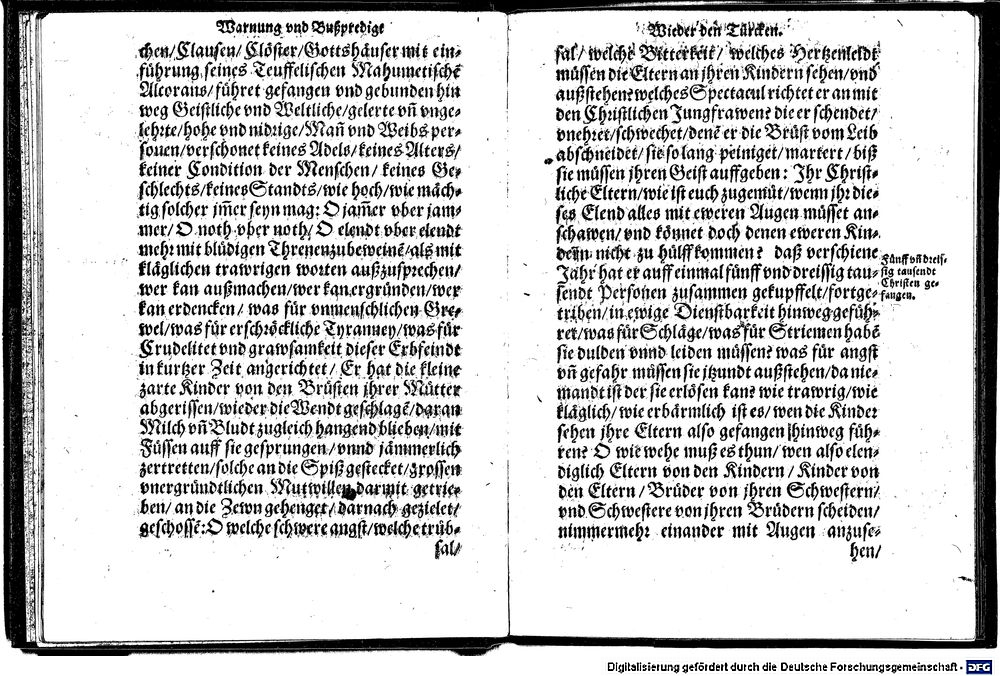 Warnung vnd Bußpredige
chen/Clausen/Clöster/Gottshäuser mit ein-
führung seines Teuffelischen Mahumetischē
Alcorans/führet gefangen vnd gebunden hin
weg Geistliche vnd Weltliche/gelerte vn̄ vnge-
lehrte/hohe vnd nidrige/Mañ vnd Weibs per-
sonen/verschonet keines Adels/keines Alters/
keiner Condition der Menschen/ keines Ge-
schlechts/keines Standts/wie hoch/wie mäch-
tig solcher jm̄er seyn mag: O jam̄er vber jam-
mer/ O noth vber noth/ O elendt vber elendt
mehr mit blüdigen Threnen zubeweinē/als mit
kläglichen trawrigen worten außzusprechen/
wer kan außmachen/wer kan ergründen/wer
kan erdencken/ was für vnmenschlichen Gre-
wel/was für erschröckliche Tyranney/was für
Crudelitet vnd grawsamkeit dieser Erbfeindt
in kurtzer Zeit angerichtet/ Er hat die kleine
zarte Kinder von den Brüsten jhrer Mütter
abgerissen/wieder die Wendt geschlagē/daran
Milch vn̄ Bludt zugleich hangend blieben/mit
Füssen auff sie gesprungen/ vnnd jämmerlich
zertretten/solche an die Spiß gestecket/grossen
vnergründtlichen Mutwillen darmit getrie-
ben/ an die Zewn gehenget/ darnach gezielet/
geschossē: O welche schwere angst/welche trüb-
sal/
Wieder den Türcken.
sal/ welche Bitterkeit/ welches Hertzenleidt
müssen die Eltern an jhren Kindern sehen/vnd
außstehen? welches Spectacul richtet er an mit
den Christlichen Jungfrawen? die er schendet/
vnehret/schwechet/denē er die Brüst vom Leib
abschneidet/ sie so lang peiniget/martert/ biß
sie müssen jhren Geist auffgeben: Ihr Christ-
liche Eltern/wie ist euch zugemüt/wenn jhr die-
ses Elend alles mit eweren Augen müsset an-
schawen/ vnd könnet doch denen eweren Kin-
dern nicht zu hülff kommen? daß verschiene
Jahr hat er auff einmal fünff vnd dreissig tau-
sendt Personen zusammen gekupffelt/fortge-
triben/in ewige Dienstbarkeit hinweg gefüh-
ret/was für Schläge/was für Striemen habē
sie dulden vnnd leiden müssen? was für angst
vn̄ gefahr müssen sie jtzundt außstehen/da nie-
mandt ist der sie erlösen kan? wie trawrig/wie
kläglich/wie erbärmlich ist es/wen die Kinder
sehen jhre Eltern also gefangen hinweg füh-
ren? O wie wehe muß es thun/ wen also elen-
diglich Eltern von den Kindern/ Kinder von
den Eltern/ Brüder von jhren Schwestern/
vnd Schwestere von jhren Brüdern scheiden/
nimmermehr einander mit Augen anzuse-
hen/
Fünff vn̄ dreis-
sig tausendt
Christen ge-
fangen.
Digitalisierung gefördert durch die Deutsche Forschungsgemeinschaft - DFG